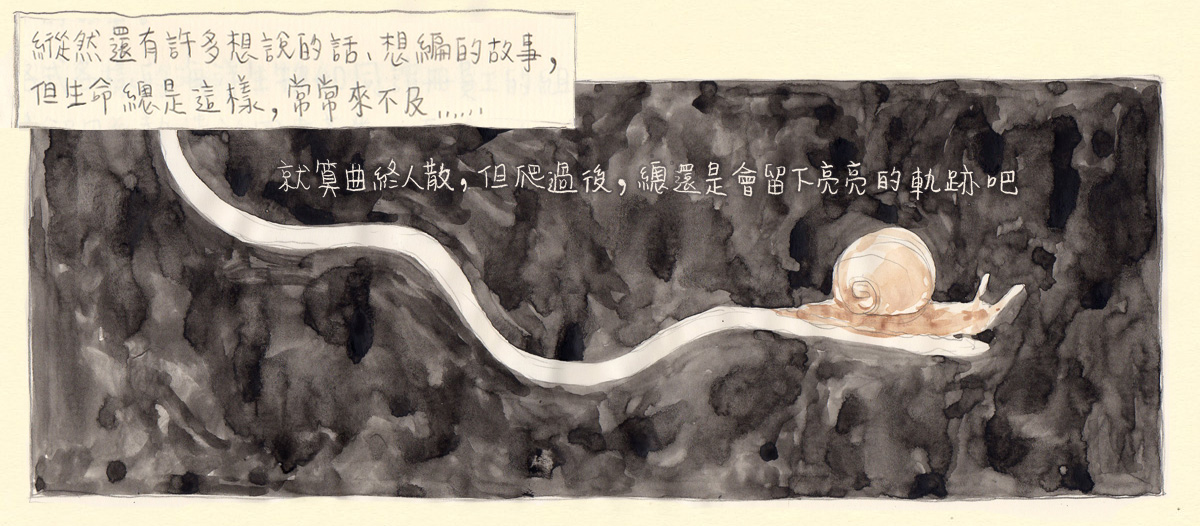 縱然還有許多想說的話、想編的故事，
但生命總是這樣，常常來不及……
就算曲終人散，但爬過後，總還是會留下亮亮的軌跡吧